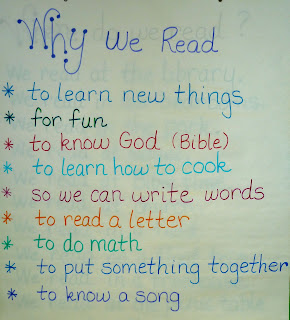 Why We Read
* to learn new things
* for fun
* to know God (Bible)
* to learn how to cook
* so we can write words
* to read a letter
* to do math
* to put something together
* to know a song